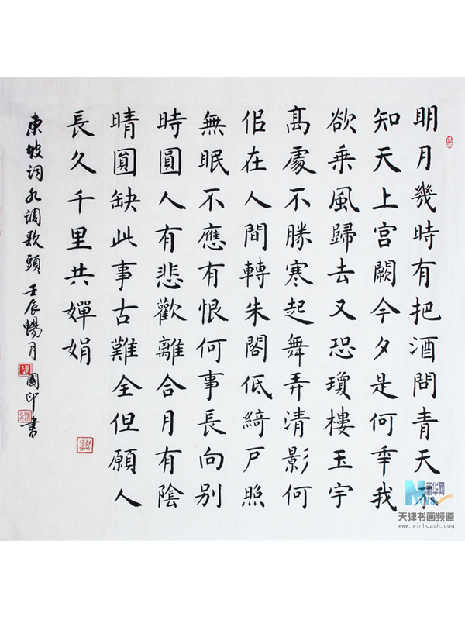 明月幾時有把酒問青天不
知天上宮闕今夕是何年我
欲乘風歸去又恐瓊樓玉宇
高處不勝寒起舞弄清影何
佀在人間轉朱閣低綺戶照
無眠不應有恨何事長向別
時圓人有悲歡離合月有陰
晴圓缺此事古難全但願人
長久千里共嬋娟
東坡词水调歌頭 壬辰暢月 國印書
新华网
天津书画频道